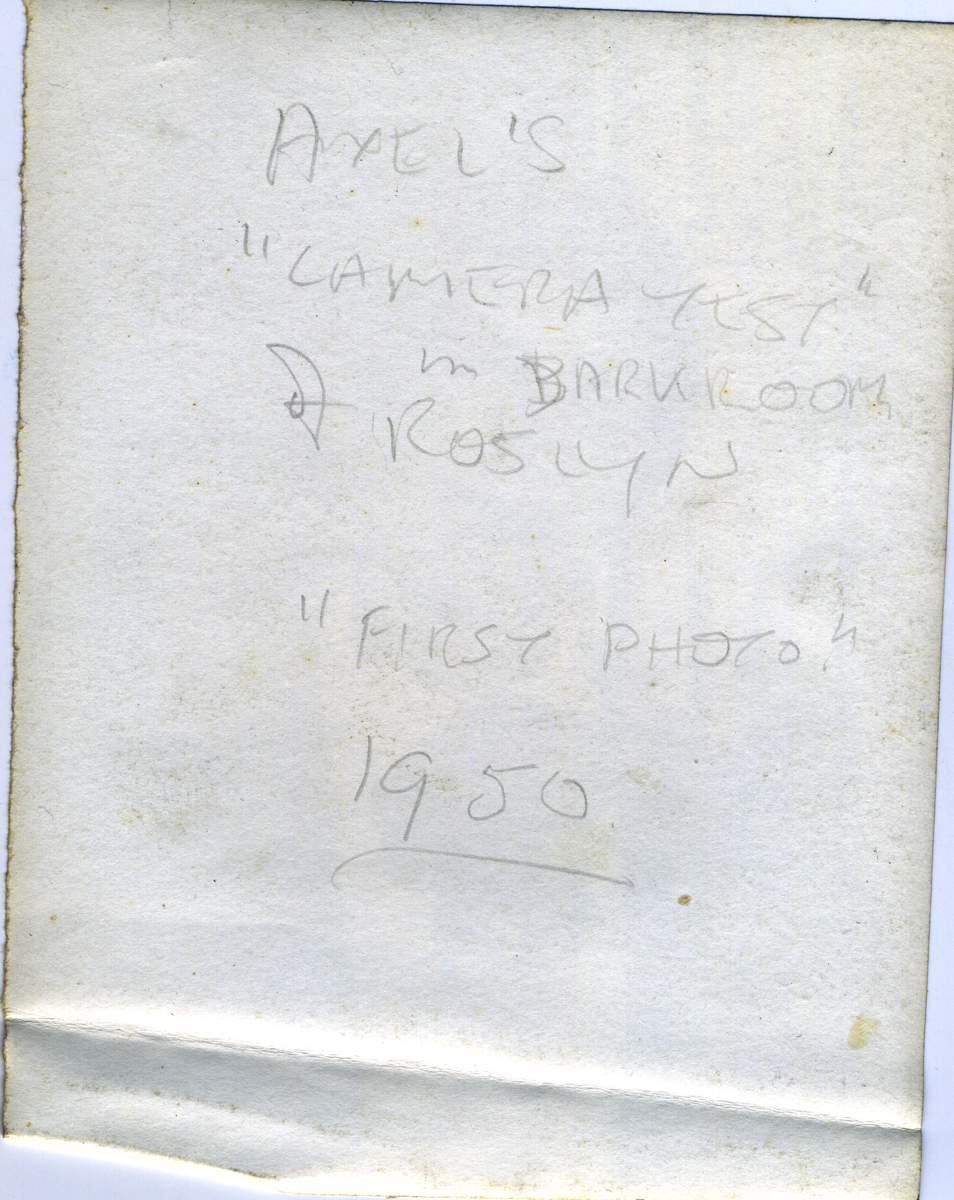 AXEL'S
"CAMERA TEST"
in DARKROOM
ROSLYN
"FIRST PHOTO"
1950